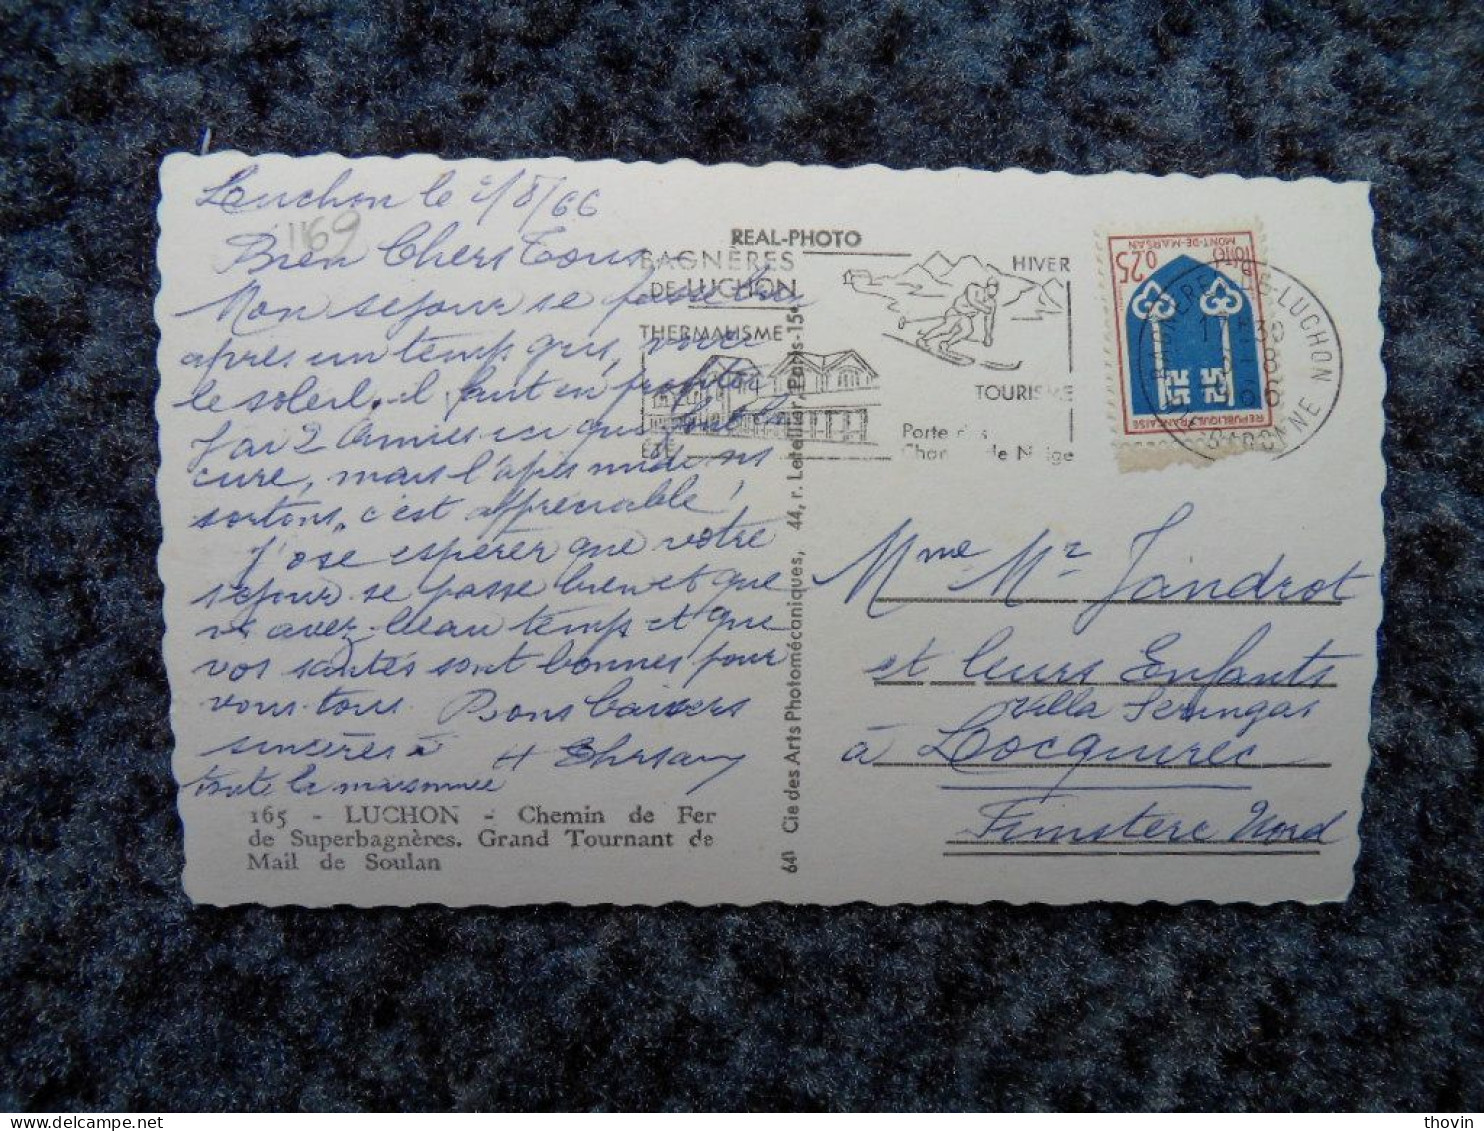 Luchon le 2/8/66
1169
Bien Chers Tous
Mon sejour se passe bien
après un temps gris, voici
le soleil. il faut en profiter
J'ai 2 Amies ici qui font la
cure, mais l'après midi ns
sortons, c'est appréciable!
J'ose espérer que votre
séjour se passe bien et que
vs avez beau temps et que
vos santés sont bonnes pour
vous tous. Bons baisers
sincères à
toute la maisonnée
165 - LUCHON - Chemin de Fer
de Superbagnères. Grand Tournant de
Mail de Soulan
REAL-PHOTO
BAGNÈRES
DE LUCHON
THERMALISME
ÉTÉ
HIVER
TOURISME
Porte des
Champs de Neige
641 Cie des Arts Photomécaniques, 44, r. Letellier, Paris-15e
0,25
MONT-DE-MARSAN
REPUBLIQUE FRANÇAISE
BAGNERES-DE-LUCHON
Mme Mr Jandrot
et leurs Enfants
Villa Seringas
à Locquirec
Finistere Nord
thovin